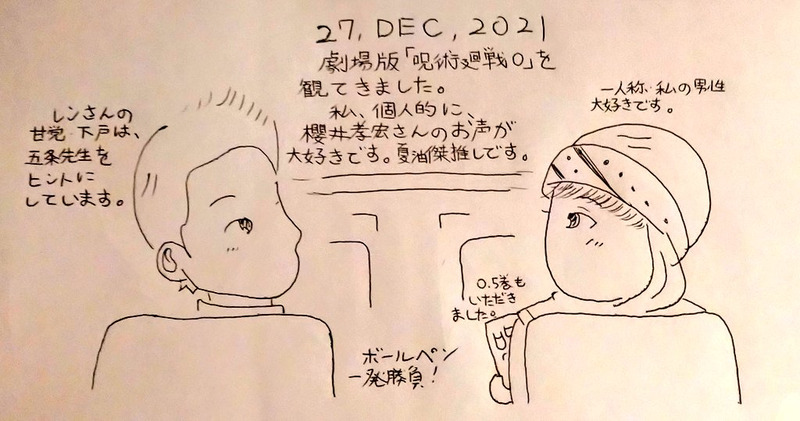 27, DEC, 2021
劇場版「呪術廻戦0」を
観てきました。
私、個人的に、
櫻井孝宏さんのお声が
大好きです。夏油傑推しです。
レンさんの
甘党・下戸は、
五条先生を
ヒントに
しています。
一人称・私の男性
大好きです。
0.5巻も
いただき
ました。
ボールペン
一発勝負!